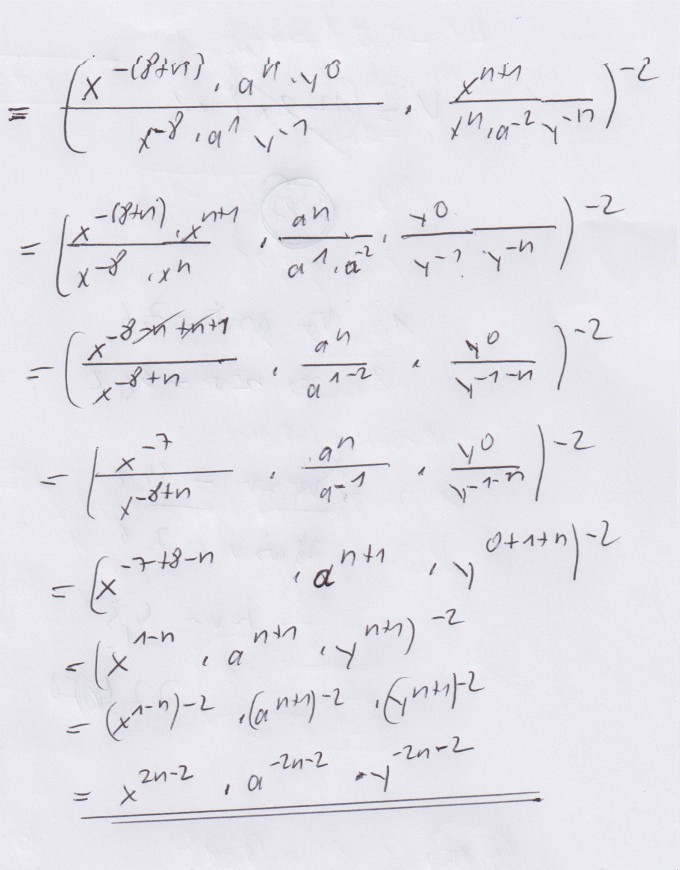 = (x^-(8+n) · a^n · y^0 / x^-8 · a^1 y^-1 · x^n+1 / x^n · a^-2 y^-n)^-2
= (x^-(8+n) · x^n+1 / x^-8 · x^n · a^n / a^1 · a^-2 · y^0 / y^-1 y^-n)^-2
= (x^-8-n+n+1 / x^-8+n · a^n / a^1-2 · y^0 / y^-1-n)^-2
= (x^-7 / x^-8+n · a^n / a^-1 · y^0 / y^-1-n)^-2
= (x^-7+8-n · a^n+1 · y^0+1+n)^-2
= (x^1-n · a^n+1 · y^n+1)^-2
= (x^1-n)^-2 · (a^n+1)^-2 · (y^n+1)^-2
= x^2n-2 · a^-2n-2 · y^-2n-2